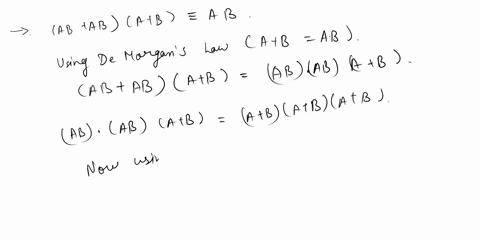 → (AB + AB) (A+B) ≡ AB.
Using De Morgan's Law (A+B = AB).
(AB + AB) (A+B) = (AB)(AB) (A+B).
(AB) · (AB) (A+B) = (A+B)(A+B)(A+B).
Now usi